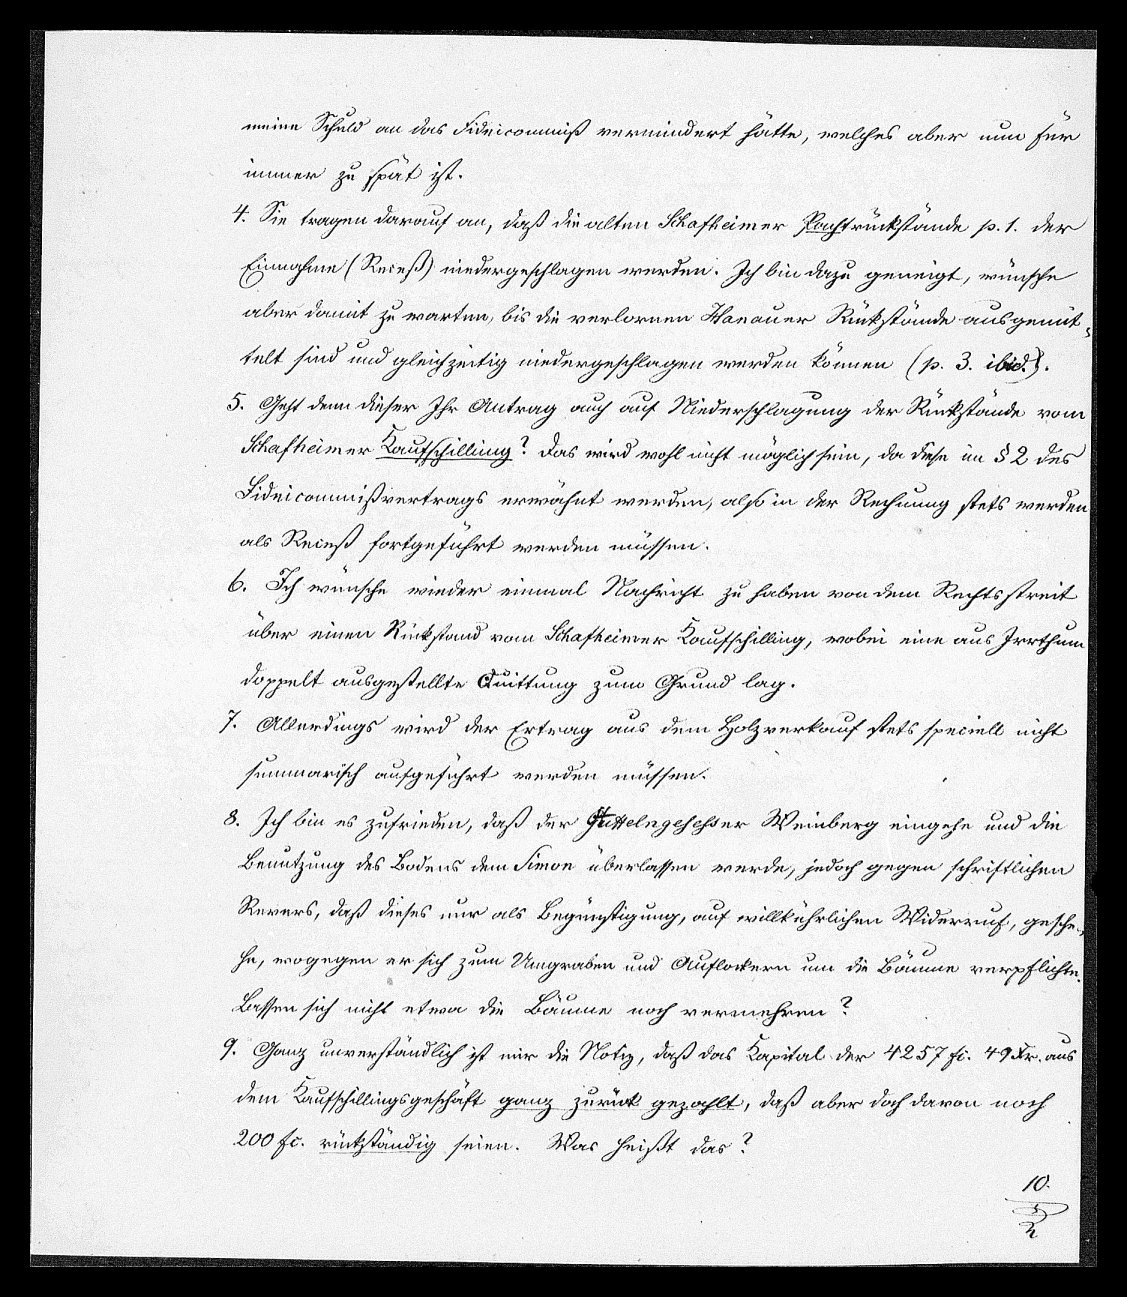 meine Schuld an das Fideicommiß vermindert hätte, welches aber nun für
immer zu spät ist.
4. Sie tragen darauf an, daß die alten Schafheimer Pachtrückstände p. 1. der
Einnahme (Receß) niedergeschlagen werden. Ich bin dazu geneigt, wünsche
aber damit zu warten, bis die verlornen Hanauer Rückstände ausgemit-
telt sind und gleichzeitig niedergeschlagen werden können (p. 3. ibid.).
5. Geht denn dieser Ihr Antrag auch auf Niederschlagung der Rückstände vom
Schafheimer Kaufschilling? Das wird wohl nicht möglich sein, da diese im § 2 des
Fideicommißvertrags erwähnt werden, also in der Rechnung stets werden
als Receß fortgeführt werden müssen.
6. Ich wünsche wieder einmal Nachricht zu haben von dem Rechtsstreit
über einen Rückstand vom Schafheimer Kaufschilling, wobei eine aus Irrthum
doppelt ausgestellte Quittung zum Grund lag.
7. Allerdings wird der Ertrag aus dem Holzverkauf stets speciell nicht
summarisch aufgeführt werden müssen.
8. Ich bin es zufrieden, daß der Weinberg eingehe und die
Benutzung des Bodens dem Simon überlassen werde, jedoch gegen schriftlichen
Revers, daß dieses nur als Begünstigung, auf willkührlichen Widerruf, gesche-
he, wogegen er sich zum Umgraben und Auflockern um die Bäume verpflichte.
Lassen sich nicht etwa die Bäume noch vermehren?
9. Ganz unverständlich ist mir die Notiz, daß das Kapital der 4257 fl. 49 Xr. aus
dem Kaufschillingsgeschäft ganz zurück gezahlt, daß aber doch davon noch
200 fl. rückständig seien. Was heißt das?
10.